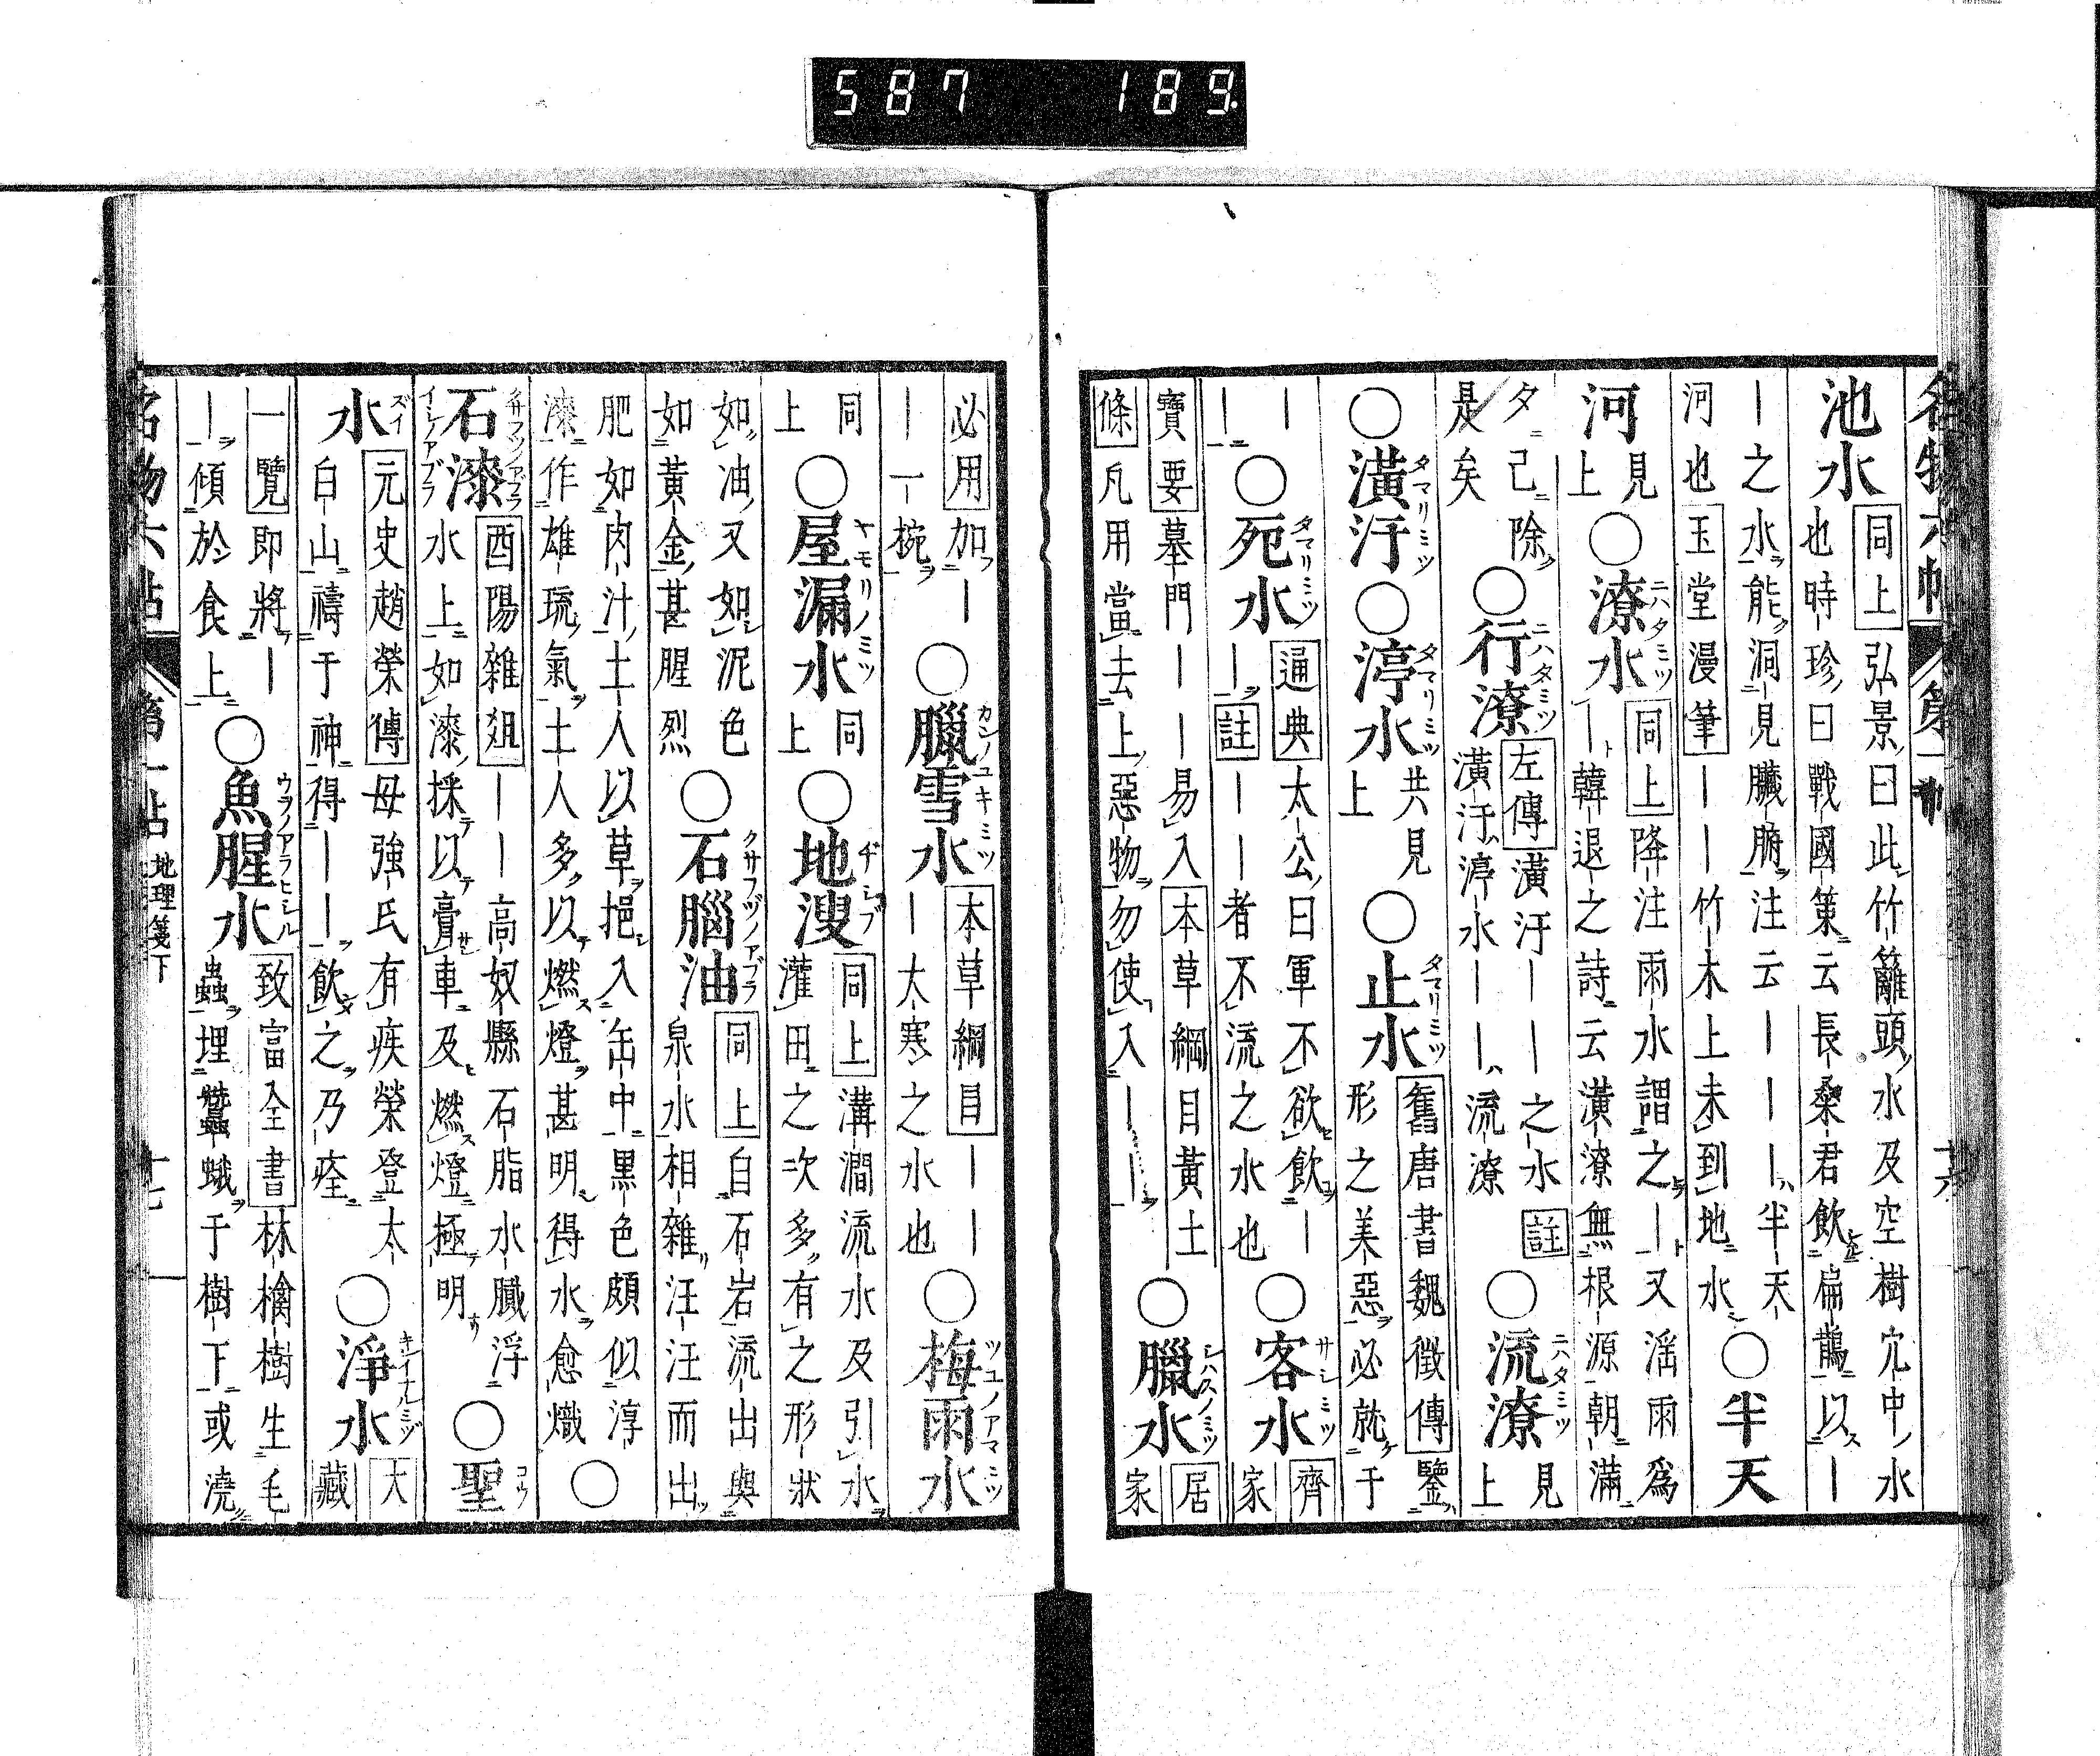 587 189
名物六帖 第一帖 十六
池水 同上 弘景曰此竹籬頭水及空樹穴中水也時珍曰戰國策云長桑君飲扁鵲以丨
丨之水能洞見臟腑注云丨丨丨半天河也 玉堂漫筆 丨丨竹木上未到地水 ○半天
河 見上 ○潦水 同上 降注雨水謂之丨又淫雨爲丨韓退之詩云潢潦無根源朝滿
夕已除是矣 ○行潦 左傳 潢汙丨丨之水 註 潢汙渟水丨丨流潦 ○流潦 見上
○潢汙 ○渟水 共見上 ○止水 舊唐書魏徵傳 鑒形之美惡必就于
丨丨 ○死水 通典 太公曰軍不欲飲丨丨 註 丨丨者不流之水也 ○客水 齊家
寶要 墓門丨丨易入 本草綱目黃土條 凡用當去上惡物勿使入丨丨 ○臘水 居家
必用 加丨丨一椀 ○臘雪水 本草綱目 丨丨丨大寒之水也 ○梅雨水
同上 ○屋漏水 同上 ○地溲 同上 溝澗流水及引水灌田之次多有之形狀
如油又如泥色如黃金甚腥烈 ○石腦油 同上 自石岩流出與泉水相雜汪汪而出
肥如肉汁土人以草挹入缶中黑色頗似淳漆作雄琉氣土人多以燃燈甚明得水愈熾 ○
石漆 酉陽雜俎 丨丨高奴縣石脂水膩浮水上如漆採以膏車及燃燈極明 ○聖
水 元史趙榮傳 母強氏有疾榮登太白山禱于神得丨丨飲之乃痊 ○淨水 大藏
一覽 即將丨丨傾於食上 ○魚腥水 致富全書 林檎樹生毛蟲埋蠶蛾于樹下或澆
名物六帖 第一帖 地理箋下 十七